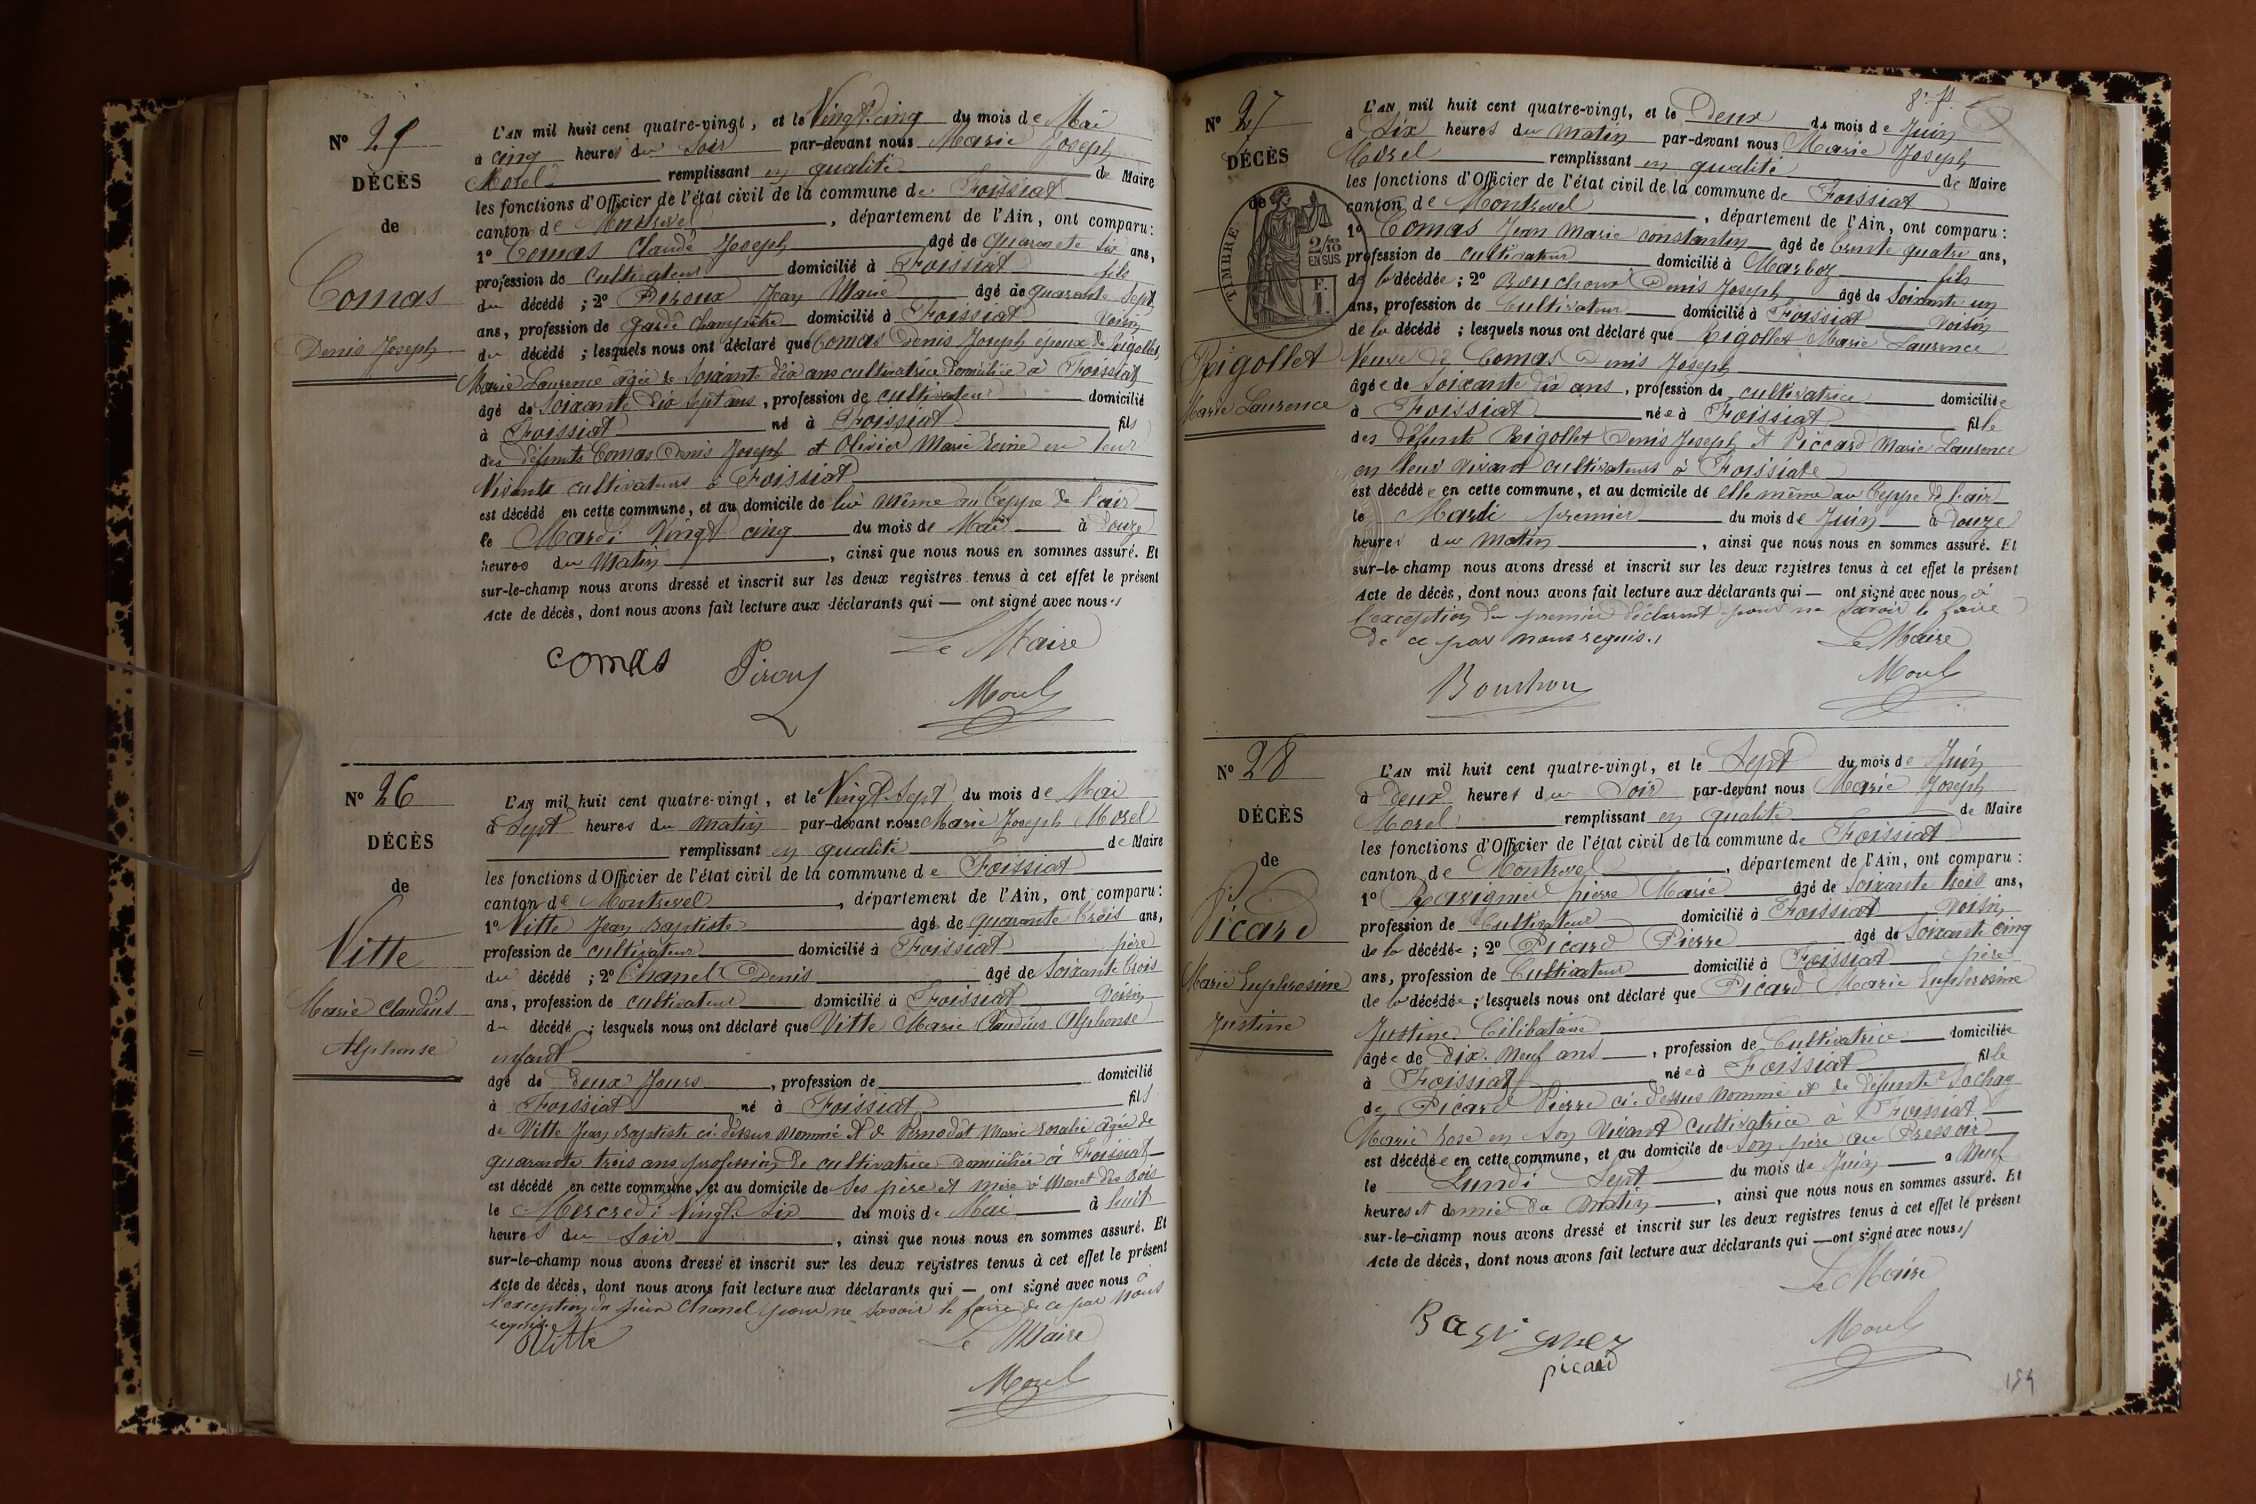 N° 25
DÉCÈS
de
Comas
Denis Joseph
L'AN mil huit cent quatre-vingt, et le Vingt-cinq du mois de Mai
à cinq heures du Soir par-devant nous Marie Joseph
Morel remplissant en qualité de Maire
les fonctions d'Officier de l'état civil de la commune de Foissiat
canton de Montrevel, département de l'Ain, ont comparu:
1° Comas Claude Joseph âgé de quarante six ans,
profession de cultivateur domicilié à Foissiat fils
du décédé; 2° Piroux Jean Marie âgé de quarante Sept
ans, profession de garde champêtre domicilié à Foissiat Voisin
du décédé; lesquels nous ont déclaré que Comas Denis Joseph époux de Rigollet
Marie Laurence âgée de Soixante dix ans cultivatrice domiciliée à Foissiat
âgé de Soixante dix sept ans, profession de cultivateur domicilié
à Foissiat né à Foissiat fils
des défunts Comas Denis Joseph et Olivier Marie Reine en leur
Vivants cultivateurs à Foissiat
est décédé en cette commune, et au domicile de lui même au Teppe de l'air
le Mardi Vingt cinq du mois de Mai à douze
heures du Matin, ainsi que nous nous en sommes assuré. Et
sur-le-champ nous avons dressé et inscrit sur les deux registres tenus à cet effet le présent
Acte de décès, dont nous avons fait lecture aux déclarants qui — ont signé avec nous.
Le Maire
comas Piroux
Morel
N° 26
DÉCÈS
de
Vitte
Marie Claudius
Alphonse
L'AN mil huit cent quatre-vingt, et le Vingt-Sept du mois de Mai
à Sept heures du matin par-devant nous Marie Joseph Morel
remplissant en qualité de Maire
les fonctions d'Officier de l'état civil de la commune de Foissiat
canton de Montrevel, département de l'Ain, ont comparu:
1° Vitte Jean Baptiste âgé de quarante trois ans,
profession de cultivateur domicilié à Foissiat père
du décédé; 2° Chanel Denis âgé de Soixante trois
ans, profession de cultivateur domicilié à Foissiat Voisin
du décédé; lesquels nous ont déclaré que Vitte Marie Claudius Alphonse
enfant
âgé de Deux Jours, profession de domicilié
à Foissiat né à Foissiat fils
de Vitte Jean Baptiste ci-dessus Nommé et de Pernodat Marie Rosalie âgée de
quarante trois ans profession de cultivatrice Domiciliée à Foissiat
est décédé en cette commune, et au domicile de Ses père et mère à Maret des Bois
le Mercredi Vingt-Six du mois de Mai à huit
heures du Soir, ainsi que nous nous en sommes assuré. Et
sur-le-champ nous avons dressé et inscrit sur les deux registres tenus à cet effet le présent
Acte de décès, dont nous avons fait lecture aux déclarants qui — ont signé avec nous à
l'exception du sieur Chanel pour ne savoir le faire de ce par Nous
requis.
Vitte Le Maire
Morel
N° 27
DÉCÈS
de
TIMBRE
2/10 EN SUS
Rigollet
Marie Laurence
L'AN mil huit cent quatre-vingt, et le Deux du mois de Juin
à Six heures du matin par-devant nous Marie Joseph
Morel remplissant en qualité de Maire
les fonctions d'Officier de l'état civil de la commune de Foissiat
canton de Montrevel, département de l'Ain, ont comparu:
1° Comas Jean Marie constantin âgé de trente quatre ans,
profession de cultivateur domicilié à Marboz fils
de la décédée; 2° Bouchoux Denis Joseph âgé de Soixante un
ans, profession de Cultivateur domicilié à Foissiat Voisin
de la décédé; lesquels nous ont déclaré que Rigollet Marie Laurence
Veuve de Comas Denis Joseph
âgée de Soixante dix ans, profession de cultivatrice domiciliée
à Foissiat née à Foissiat fille
des défunts Rigollet Denis Joseph et Piccard Marie Laurence
en leur vivant cultivateurs à Foissiat
est décédée en cette commune, et au domicile de elle même au Teppe de l'air
le Mardi premier du mois de Juin à douze
heures du matin, ainsi que nous nous en sommes assuré. Et
sur-le-champ nous avons dressé et inscrit sur les deux registres tenus à cet effet le présent
Acte de décès, dont nous avons fait lecture aux déclarants qui — ont signé avec nous à
l'exception du premier déclarant pour ne savoir le faire
de ce par nous requis.
Le Maire
Bouchoux Morel
N° 28
DÉCÈS
de
Picard
Marie Euphrosine
Justine
L'AN mil huit cent quatre-vingt, et le Sept du mois de Juin
à Deux heures du Soir par-devant nous Marie Joseph
Morel remplissant en qualité de Maire
les fonctions d'Officier de l'état civil de la commune de Foissiat
canton de Montrevel, département de l'Ain, ont comparu:
1° pierre Marie âgé de Soixante trois ans,
profession de Cultivateur domicilié à Foissiat Voisin
de la décédée; 2° Picard Pierre âgé de Soixante cinq
ans, profession de Cultivateur domicilié à Foissiat père
de la décédée; lesquels nous ont déclaré que Picard Marie Euphrosine
Justine Célibataire
âgée de dix-Neuf ans, profession de Cultivatrice domiciliée
à Foissiat née à Foissiat fille
de Picard Pierre ci-dessus Nommé et de défunte Sochay
Marie Rose en Son Vivant cultivatrice à Foissiat
est décédée en cette commune, et au domicile de Son père au Pressoir
le Lundi Sept du mois de Juin à Neuf
heures et demie du Matin, ainsi que nous nous en sommes assuré. Et
sur-le-champ nous avons dressé et inscrit sur les deux registres tenus à cet effet le présent
Acte de décès, dont nous avons fait lecture aux déclarants qui — ont signé avec nous
Le Maire
Morel
picard
154